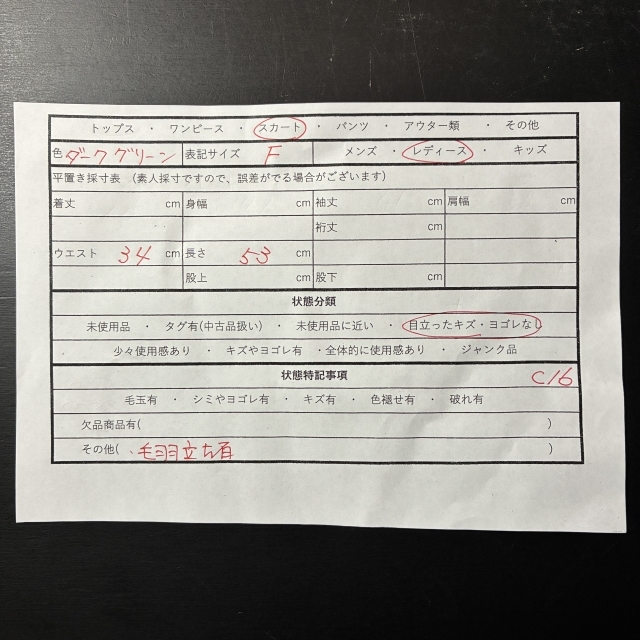 トップス ・ ワンピース ・ スカート ・ パンツ ・ アウター類 ・ その他
色 ダークグリーン 表記サイズ F メンズ ・ レディース ・ キッズ
平置き採寸表 (素人採寸ですので、誤差がでる場合がございます)
着丈 cm 身幅 cm 袖丈 cm 肩幅 cm
裄丈 cm
ウエスト 34 cm 長さ 53 cm
股上 cm 股下 cm
状態分類
未使用品 ・ タグ有(中古品扱い) ・ 未使用品に近い ・ 目立ったキズ・ヨゴレなし
少々使用感あり ・ キズやヨゴレ有 ・全体的に使用感あり ・ ジャンク品
状態特記事項 C16
毛玉有 ・ シミやヨゴレ有 ・ キズ有 ・ 色褪せ有 ・ 破れ有
欠品商品有( )
その他( 毛羽立ち有 )